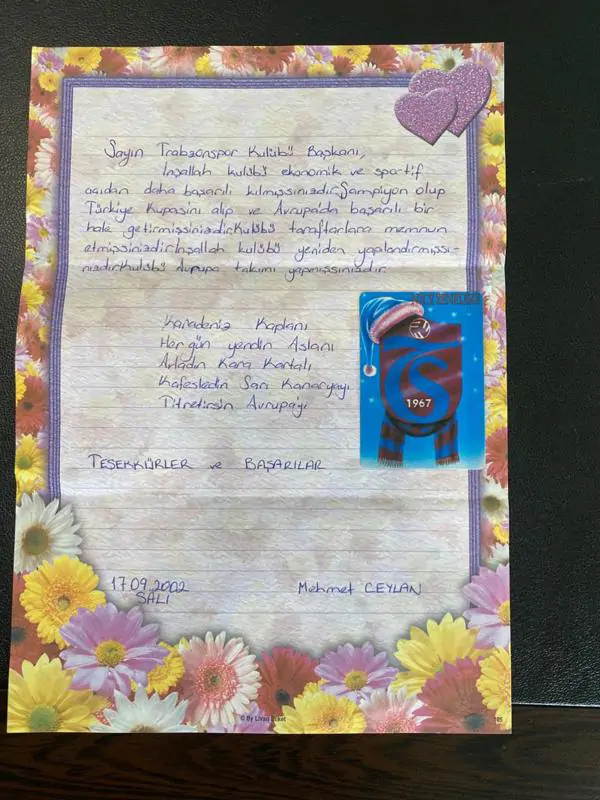 Sayın Trabzonspor Kulübü Başkanı,
İnşallah kulübü ekonomik ve sportif
açıdan daha başarılı kılmışsınızdır.Şampiyon olup
Türkiye Kupasını alıp ve Avrupa'da başarılı bir
hale getirmişsinizdir.Kulübü taraftarlara memnun
etmişsinizdir.İnşallah kulübü yeniden yapılandırmışsı-
nızdır.Kulübü Avrupa takımı yapmışsınızdır.
Karadeniz Kaplanı
Her gün yendin Aslanı
Avladın Kara Kartalı
Kafesledin Sarı Kanaryayı
Titretirsin Avrupa'yı
TS
1967
TEŞEKKÜRLER ve BAŞARILAR
17.09.2002
SALI
Mehmet CEYLAN
© By Livan